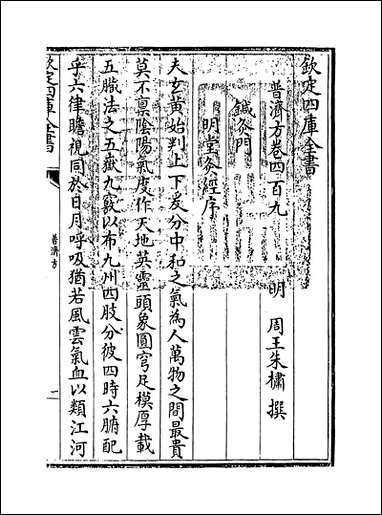 欽定四庫全書
普濟方卷四百九
明 周王朱橚 撰
鍼灸門
明堂灸經序
夫玄黃始判上下爰分中和之氣為人萬物之間最貴
莫不禀陰陽氣度作天地英靈頭象圓穹足模厚載
五臟法之五嶽九竅以布九州四肢分彼四時六腑配
乎六律瞻視同於日月呼吸猶若風雲氣血以類江河
欽定四庫全書
普濟方
一